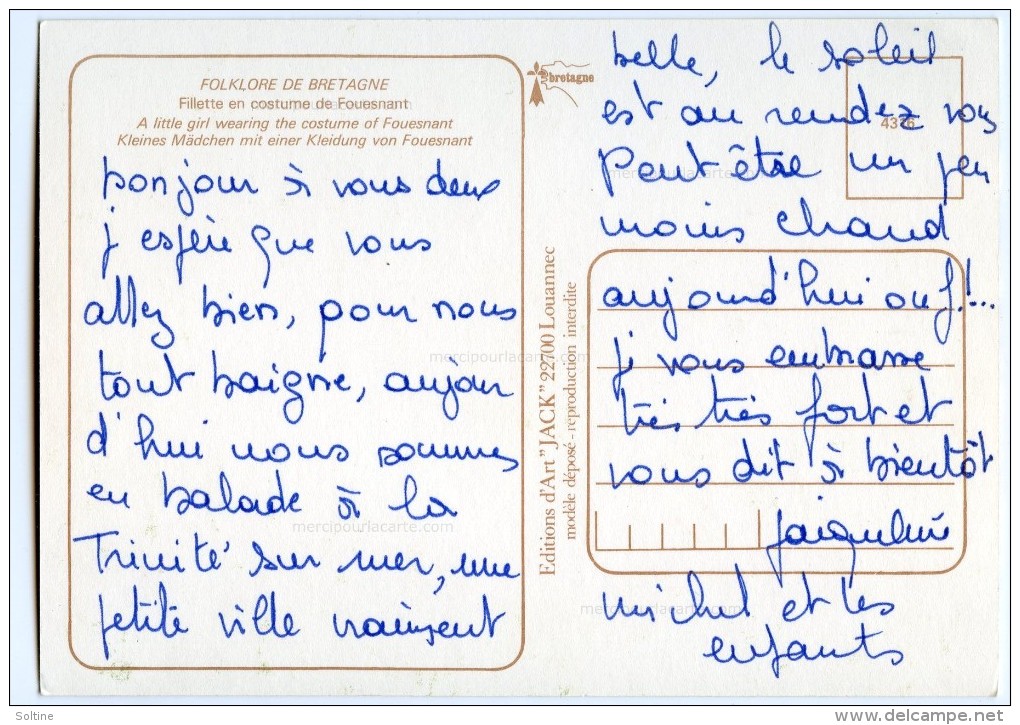 FOLKLORE DE BRETAGNE
Fillette en costume de Fouesnant
A little girl wearing the costume of Fouesnant
Kleines Mädchen mit einer Kleidung von Fouesnant
bonjour à vous deux
j'espère que vous
allez bien, pour nous
tout baigne, aujour
d'hui nous sommes
en balade à la
Trinité sur mer, une
petite ville vraiment
bretagne
Editions d'Art "JACK" 22700 Louannec
modèle déposé - reproduction interdite
4376
belle, le soleil
est au rendez vous
Peut être un peu
moins chaud
aujourd'hui ouf!...
je vous embrasse
très très fort et
vous dit à bientôt
Jacqueline
michel et les
enfants
mercipourlacarte.com
mercipourlacarte.com
mercipourlacarte.com
mercipourlacarte.com
Soltine
delcampe.net